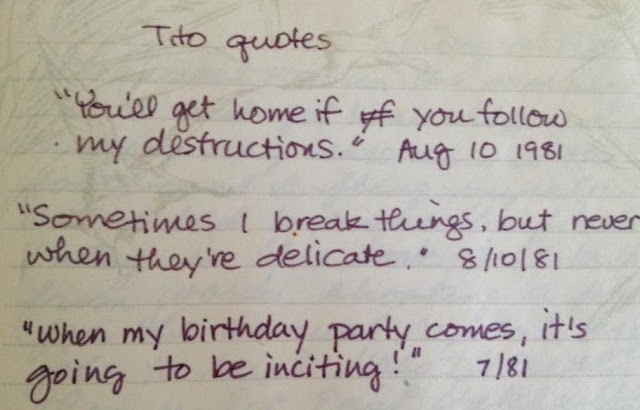 Tito quotes
"You'll get home if if you follow
my destructions." Aug 10 1981
"Sometimes I break things, but never
when they're delicate." 8/10/81
"When my birthday party comes, it's
going to be inciting!" 7/81